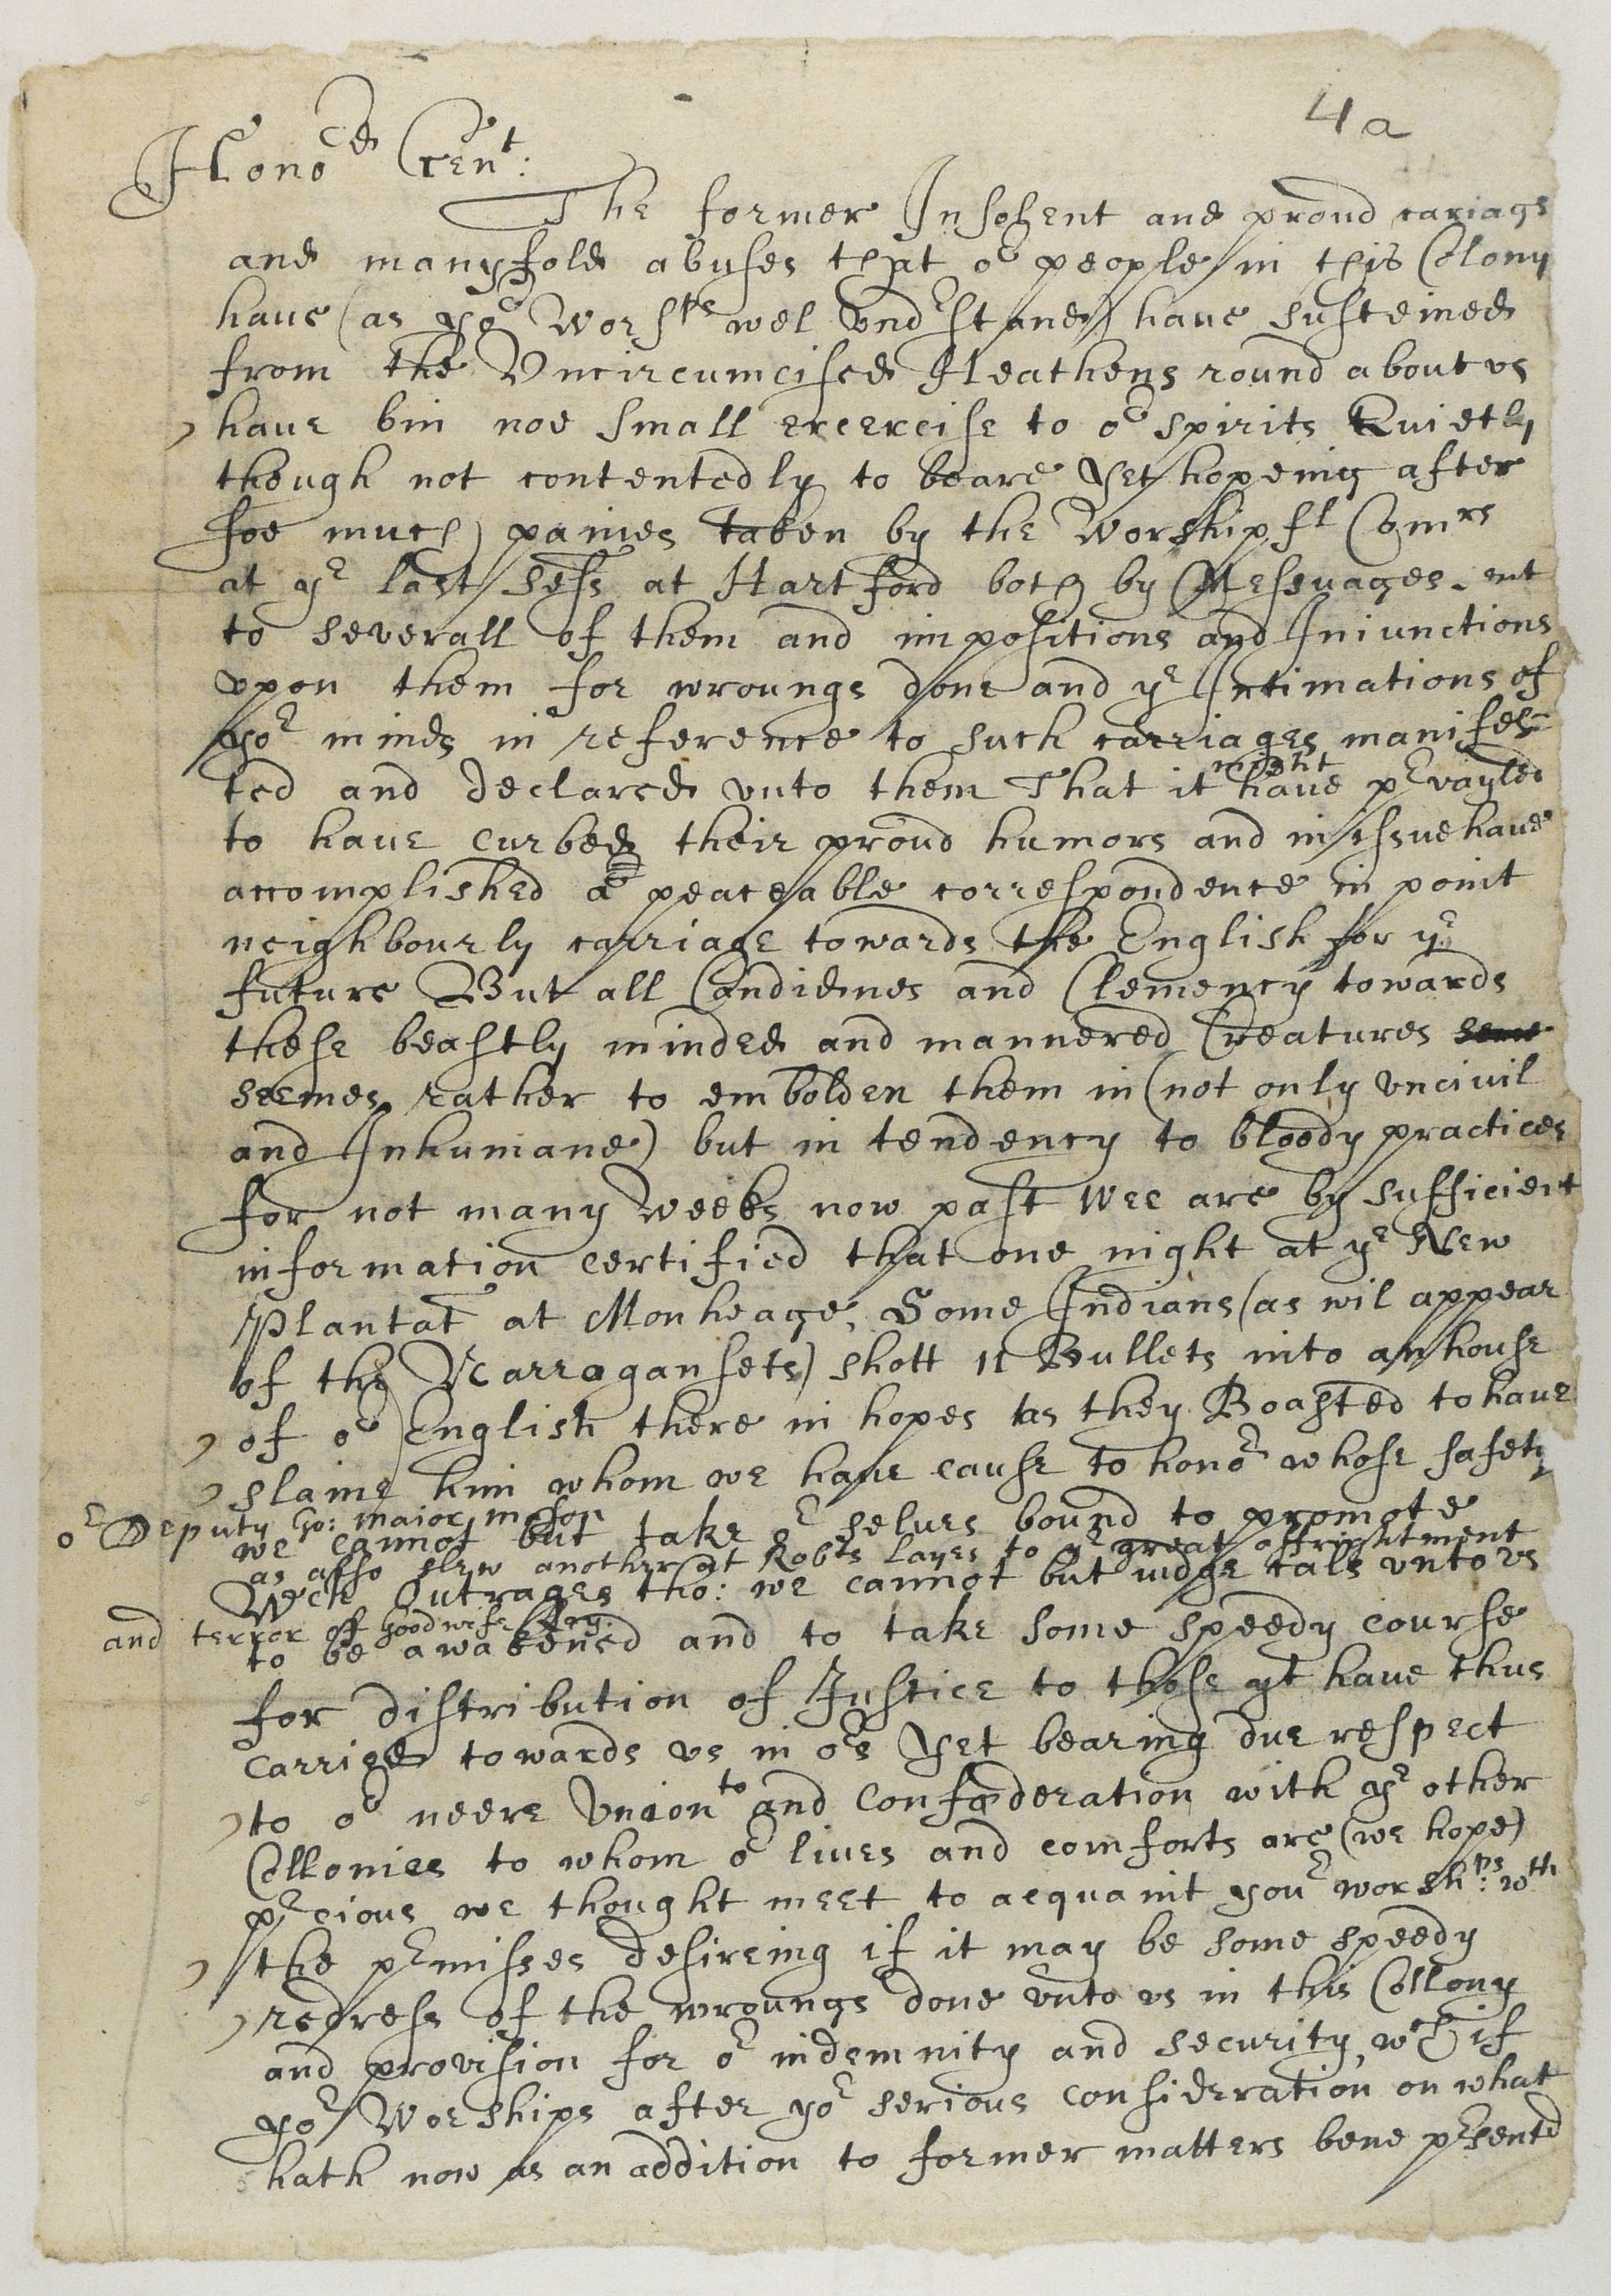 4a
Honoed Gent:
The former Insolent and proud cariags
and manyfold abuses that or people in this Colony
haue (as yor Worsps wel vndrstand) haue susteined
from the Vncircumcised Heathens round about vs
haue bin noe small exercise to or spirits Quietly
though not contentedly to beare yet hopeing after
soe much paines taken by the Worshipfl Comrs
at ye last sess at Hartford both by Messuages ent
to severall of them and impositions and Iniunctions
vpon them for wroungs done and ye Intimations of
yor minds in reference to such carriages manifes=
ted and declared vnto them That it might haue prvayled
to haue curbed their proud humors and in issue haue
accomplished a peaceable correspondence in point
neighbourly carriage towards the English for ye
future But all Candidnes and Clemency towards
these beastly minded and mannered Creatures seme
seemes rather to embolden them in (not only vncivil
and Inhumane) but in tendency to bloody practices
for not many weeks now past wee are by sufficient
information certified that one night at ye New
Plantat at Monheage, Some Indians (as wil appear
of the Narragansets) shott 11 Bullets into an house
of or English there in hopes as they Boasted to haue
slaine him whom we haue cause to honor whose safety
or Deputy Go: maior mason
we cannot but take or selves bound to promote
as also slew another at Robts Layes to ye great affrightment
Wch Outrages tho: we cannot but iudge cals vnto vs
and terror of Goodwife Lay
to be awakened and to take some speedy course
for distribution of Justice to those yt haue thus
carried towards vs in ors yet bearing due respect
to or neere Union to and Confœderation with ye other
Collonies to whom or liues and comforts are (we hope)
prcious we thought meet to acquaint your worshps: wth
the prmisses desireing if it may be some speedy
redress of the wroungs done vnto vs in this Collony
and provision for or indemnity and security, wch if
yor Worships after yor serious consideration on what
hath now as an addition to former matters bene prsentd